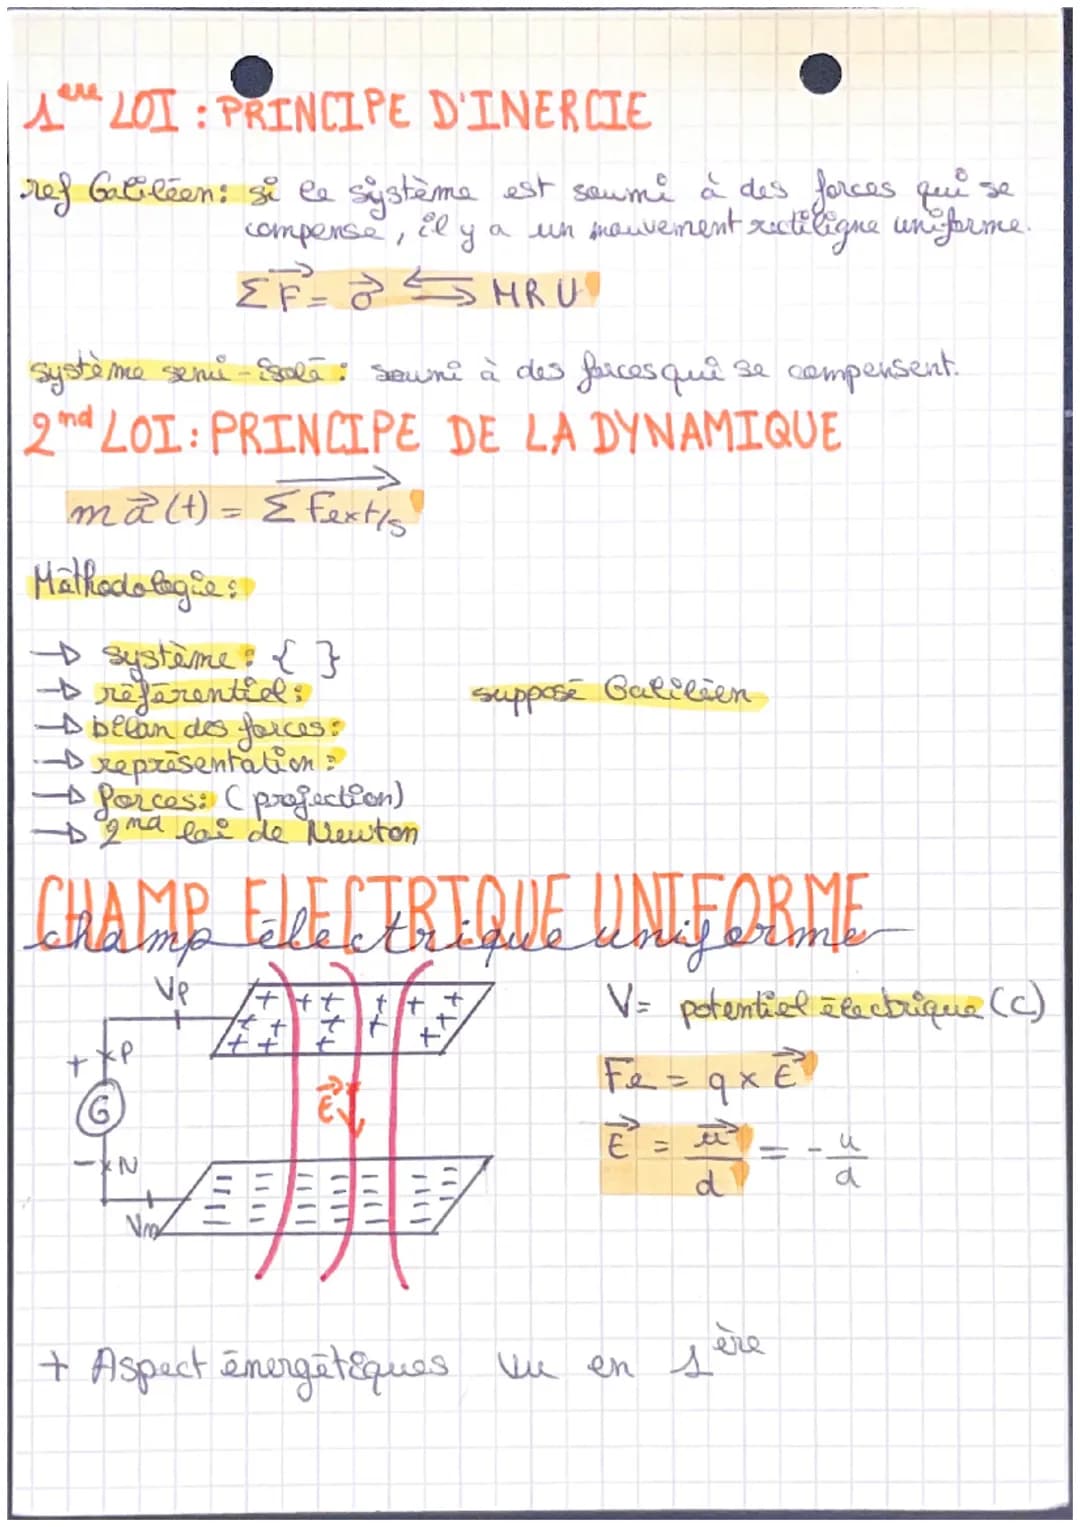 1ère LOI : PRINCIPE D'INERCIE
ref Galiléen : si le système est soumi à des forces qui se
compense, il y a un mouvement rectiligne uniforme.
ΣF⃗ = 0⃗ ⇆ MRU
système semi-isolé : soumi à des forces qui se compensent.
2nd LOI : PRINCIPE DE LA DYNAMIQUE
m a⃗ (t) = Σ Fext/s
Méthodologie :
→ système : { }
→ référentiel : supposé Galiléen
→ bilan des forces :
→ représentation :
→ forces : (projection)
→ 2nd loi de Newton
CHAMP ELECTRIQUE UNIFORME
champ électrique uniforme
Vp
+ P
G
- N
Vn
E⃗
V = potentiel électrique (C)
Fe = q × E⃗
E⃗ = u⃗/d = - u/d
+ Aspect énergétiques vu en 1ère